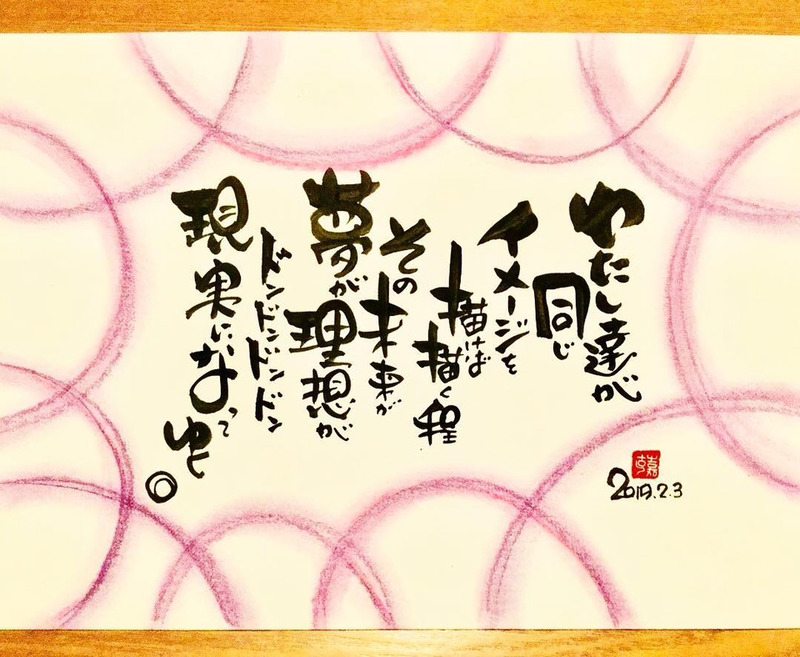 わたし達が
同じ
イメージを
描けば
描く程
その
未来が
夢が
理想が
ドンドンドンドン
現実になって
ゆく。
2019.2.3